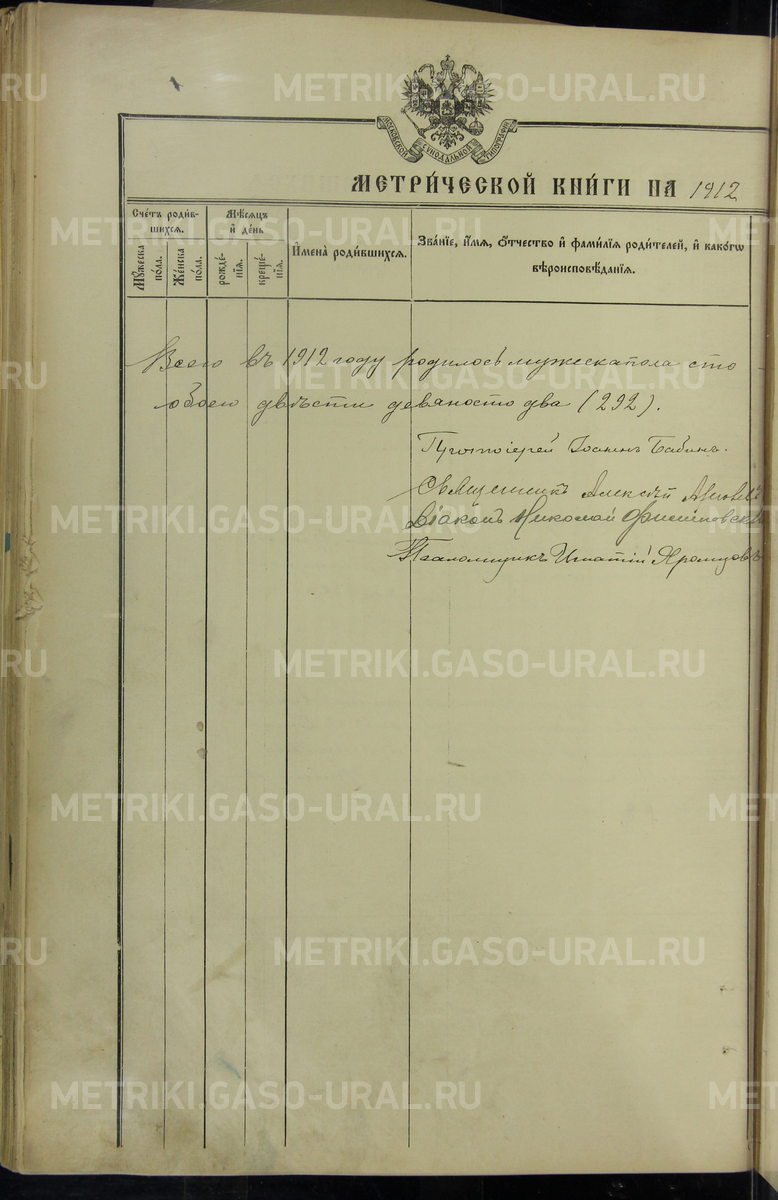 МОСКОВСКОЙ СѴНОДАЛЬНОЙ ТИПОГРАФІИ
МЕТРИ́ЧЕСКОЙ КНИ́ГИ НА 1912
Сче́тъ роди́в-
шихсѧ.
Мѣ́сѧцъ
и҆ де́нь
И҆мена̀ роди́вшихсѧ.
Зва́нїе, и҆́мѧ, ѻ҆́тчество и҆ фами́лїѧ роди́телей, и҆ како́гѡ
вѣроисповѣ́данїѧ.
Мꙋ́жеска
по́ла.
Же́нска
по́ла.
рожде́-
нїѧ.
креще́-
нїѧ.
Всего въ 1912 году родилось мужеска пола сто
обоего двѣсти девяносто два (292).
Протоіерей Іоаннъ Бабинъ.
Священникъ Алексѣй
Діаконъ Николай
Псаломщикъ Игнатій
METRIKI.GASO-URAL.RU